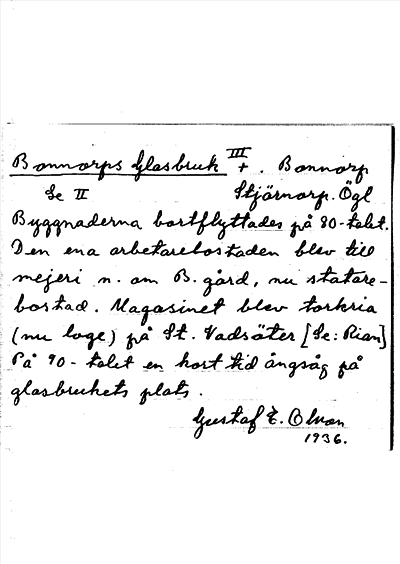 Bonnorps Glasbruk III +. Bonnorp
Se II Stjärnorp. Ögl
Byggnaderna bortflyttades på 80-talet.
Den ena arbetarebostaden blev till
mejeri n. om B. gård, nu statare-
bostad. Magasinet blev torkria
(nu loge) på St. Vadsäter [Se: Rian]
På 90-talet en kort tid ångsåg på
glasbrukets plats.
Gustaf E.
1936.